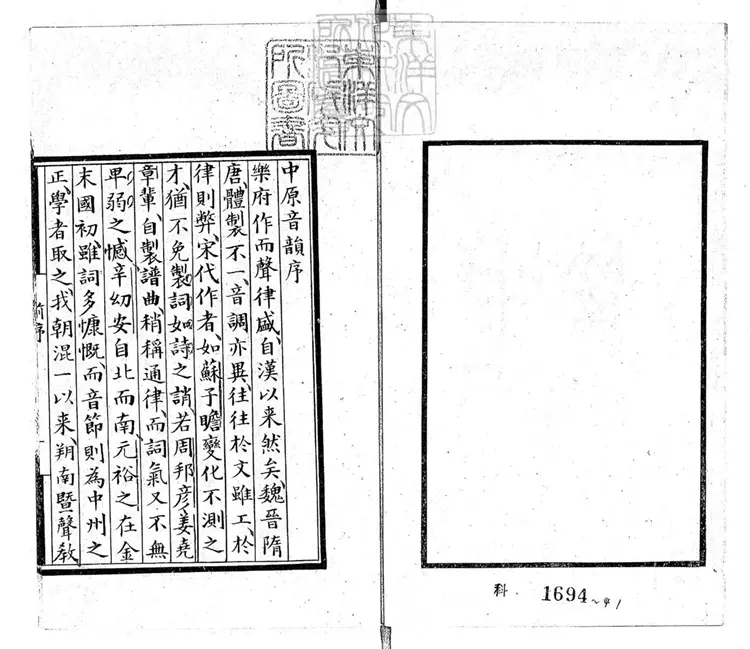 科. 1694~
中原音韻序
樂府作而聲律盛、自漢以來然矣、魏晉隋
唐、體製不一、音調亦異、往往於文雖工、於
律則弊、宋代作者、如蘇子瞻變化不測之
才、猶不免製詞如詩之誚、若周邦彦、姜堯
章輩、自製譜曲、稍稱通律、而詞氣又不無
卑弱之憾、辛幼安自北而南、元裕之在金
末國初、雖詞多慷慨、而音節則為中州之
正、學者取之、我朝混一以来、朔南暨聲教
前序